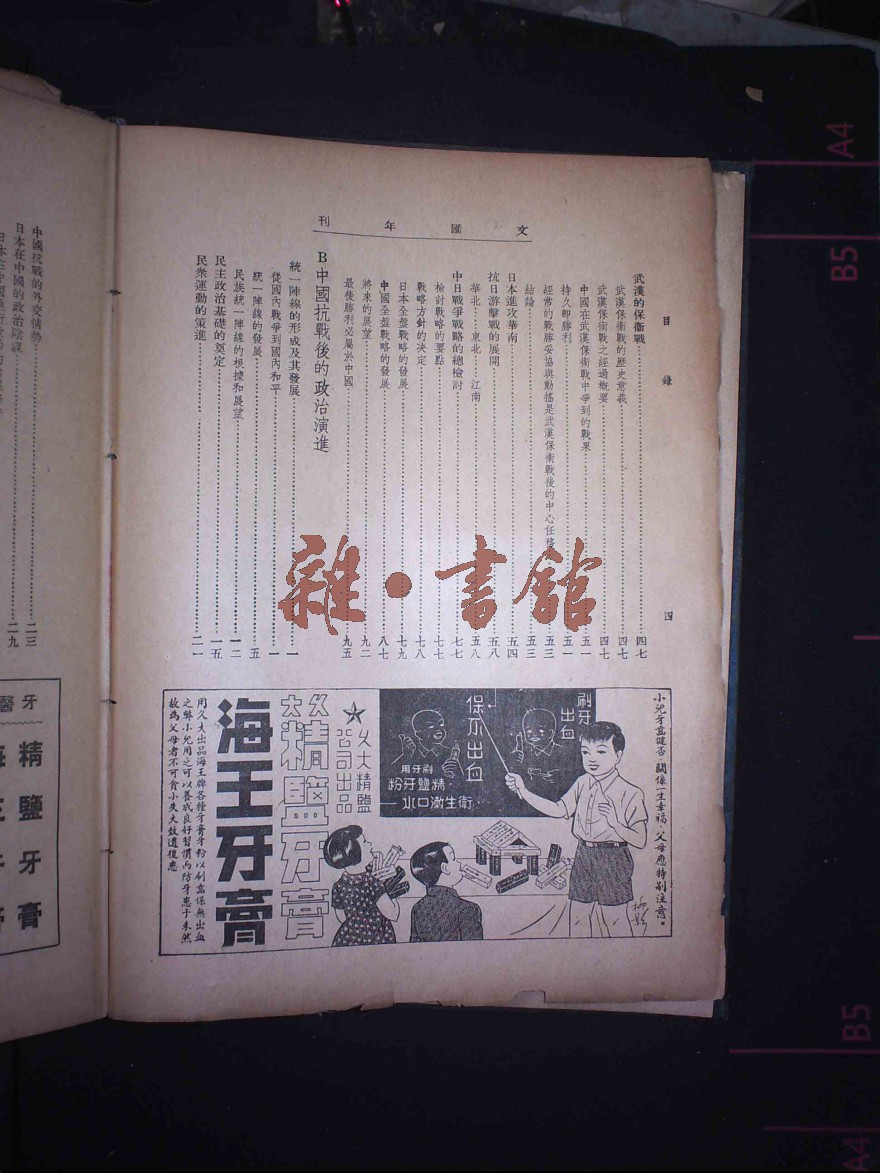 文匯年刊
目錄
四
武漢的保衛戰……四七
武漢保衛戰的歷史意義……四七
武漢保衛戰之經過概要……四七
中國在武漢保衛戰中爭到的戰果……五一
持久即勝利……五一
經常的戰勝妥協與動搖是武漢保衛戰後的中心任務……五三
結論……五三
日本進攻華南……五四
抗日游擊戰的展開……五八
華北……東北 江南……五八
中日戰爭戰略的總檢討……七七
檢討戰略的要點……七七
戰略方針的決定……七八
日本全盤戰略的發展……七九
中國全盤戰略的發展……八七
將來的展望……九二
最後勝利必屬於中國……九五
B中國抗戰後的政治演進
統一陣線的形成及其發展……一
從國內戰爭到國內和平……一
統一陣線的發展……五
民族統一陣線的根據和展望……一二
民主政治基礎的奠定……一五
民衆運動的策進……二一
中國抗戰的外交情勢……二三
日本在中國的政治陰謀……二九
雜·書館
小兒牙齒健否關係一生幸福·父母應特別注意。
刷牙出血
保不出血
刷牙用
精鹽牙粉
衛生漱口水
久大精鹽公司出品
久大精鹽牙膏
海王牙膏
用久大出品海王牌各種牙膏牙粉以刷齒保無出血
之弊小兒用之可以養成良好習慣而防牙患于未然
故為父母者不可貪小失大致遺後患
牙醫
精鹽牙膏
A4
B5
B5
A4